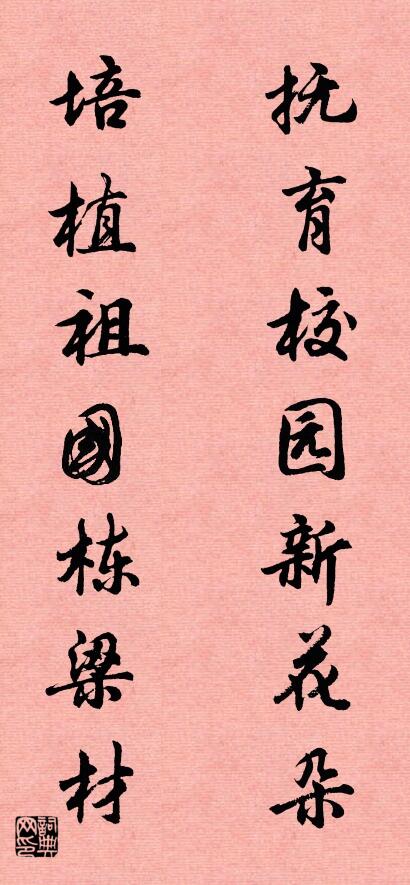 抚育校园新花朵
培植祖國栋梁材
詞典网印